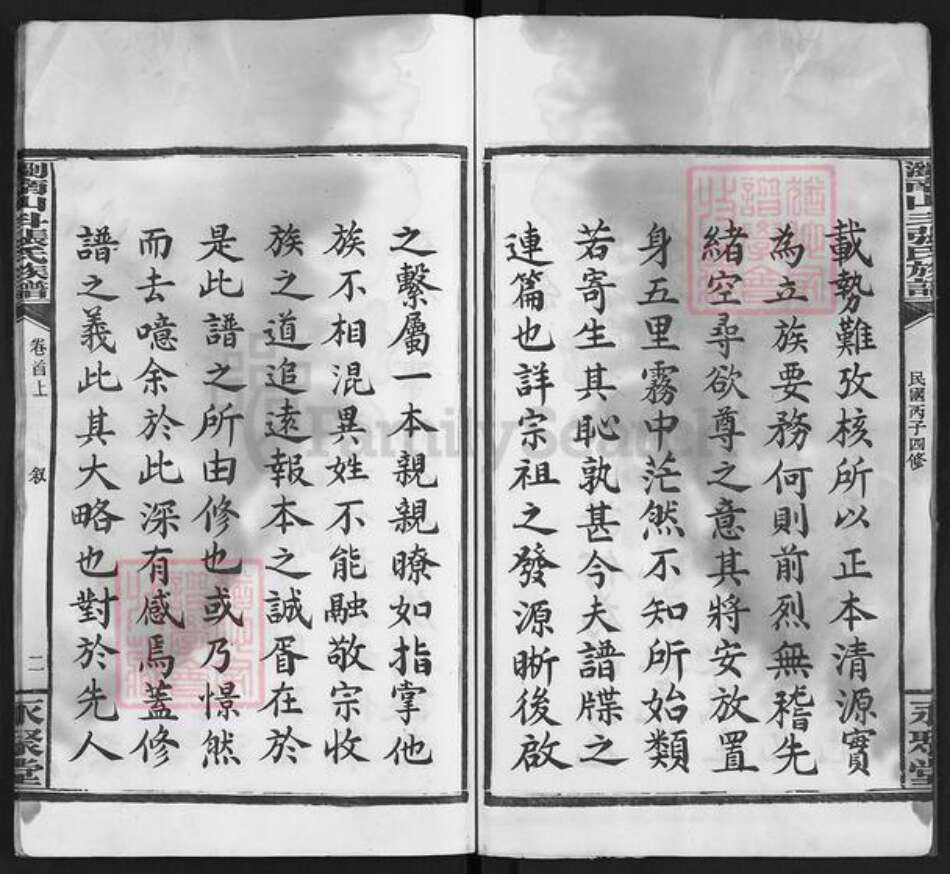 民國丙子四修
載勢難攷核所以正本清源實
為立族要務何則前烈無稽先
緒空尋欲尊之意其將安放置
身五里霧中茫然不知所始類
若寄生其恥孰甚今夫譜牒之
連篇也詳宗祖之發源晰後啟
之繫屬一本親親瞭如指掌他
族不相混異姓不能融敬宗收
族之道追遠報本之誠胥在於
是此譜之所由修也或乃憬然
而去噫余於此深有感焉蓋修
譜之義此其大略也對於先人
瀏南山斗張氏族譜
卷首上
叙
二
永聚堂
FamilySearch